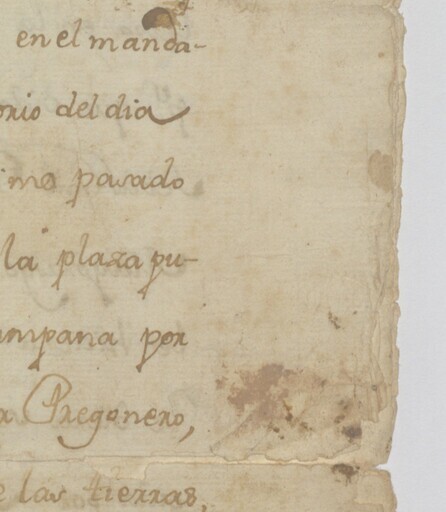 en el manda-
orio del dia
imo pasado
la plaza pu-
ampana por
Pregonero,
e las tierras,